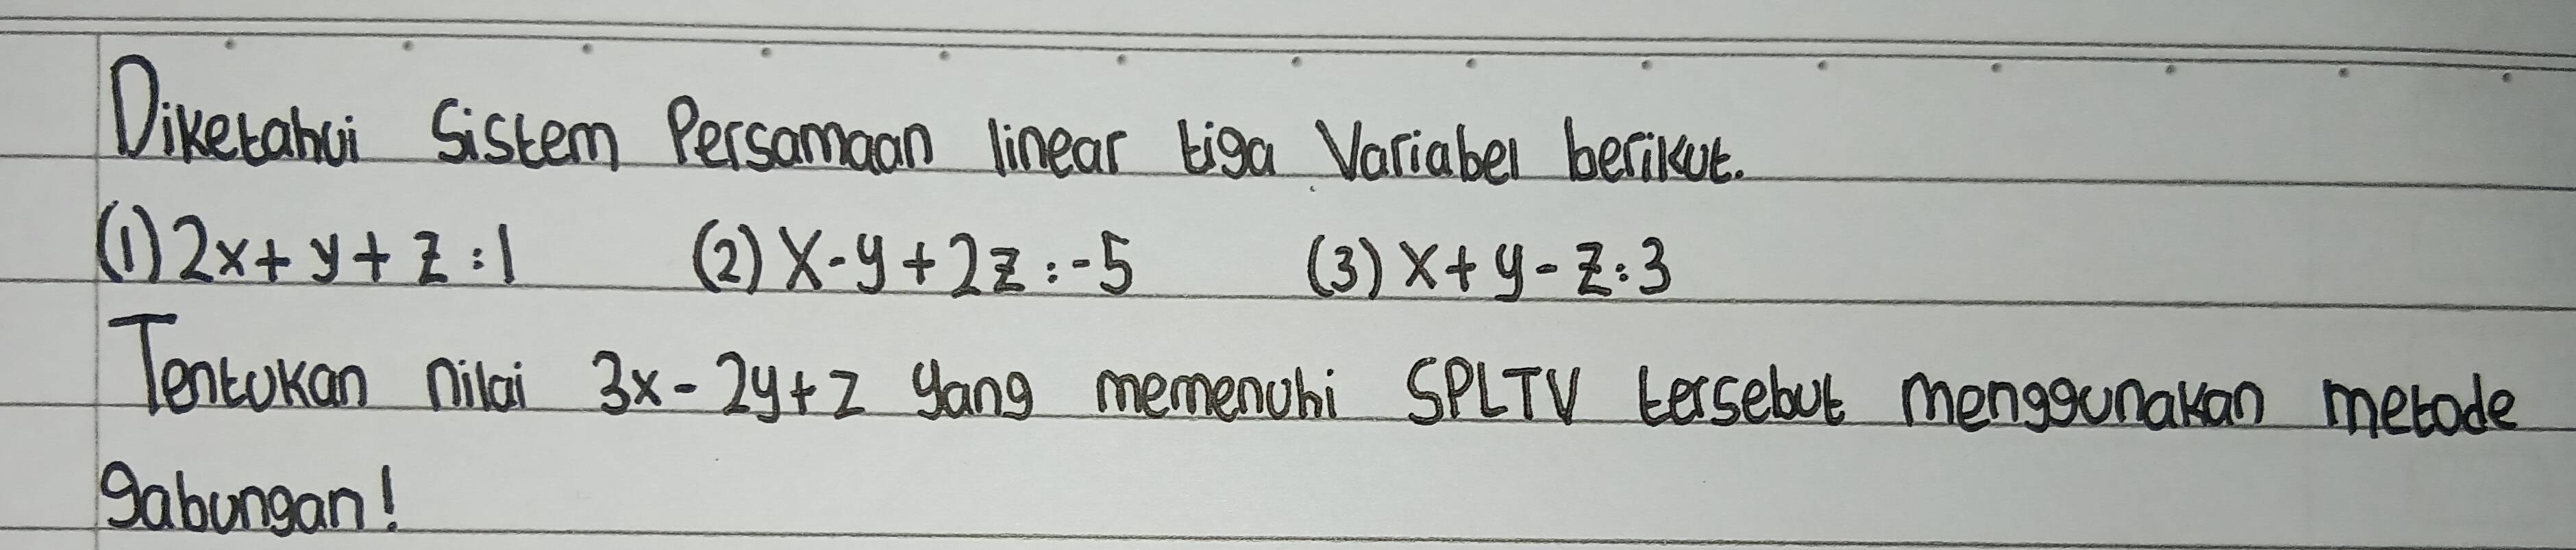 Diketahui Sistem Persamaan linear tiga Variabel berikut.
(1) 2x + y + z : 1 (2) x - y + 2z : -5 (3) x + y - z : 3
Tentukan nilai 3x - 2y + z yang memenuhi SPLTV tersebut menggunakan metode
gabungan!